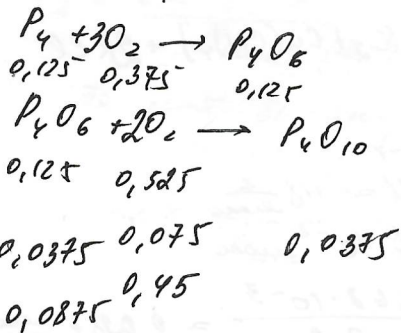 P₄ + 3O₂ → P₄O₆
0,125 0,375 0,125
P₄O₆ + 2O₂ → P₄O₁₀
0,125 0,525
0,0375 0,075 0,0375
0,0875 0,45